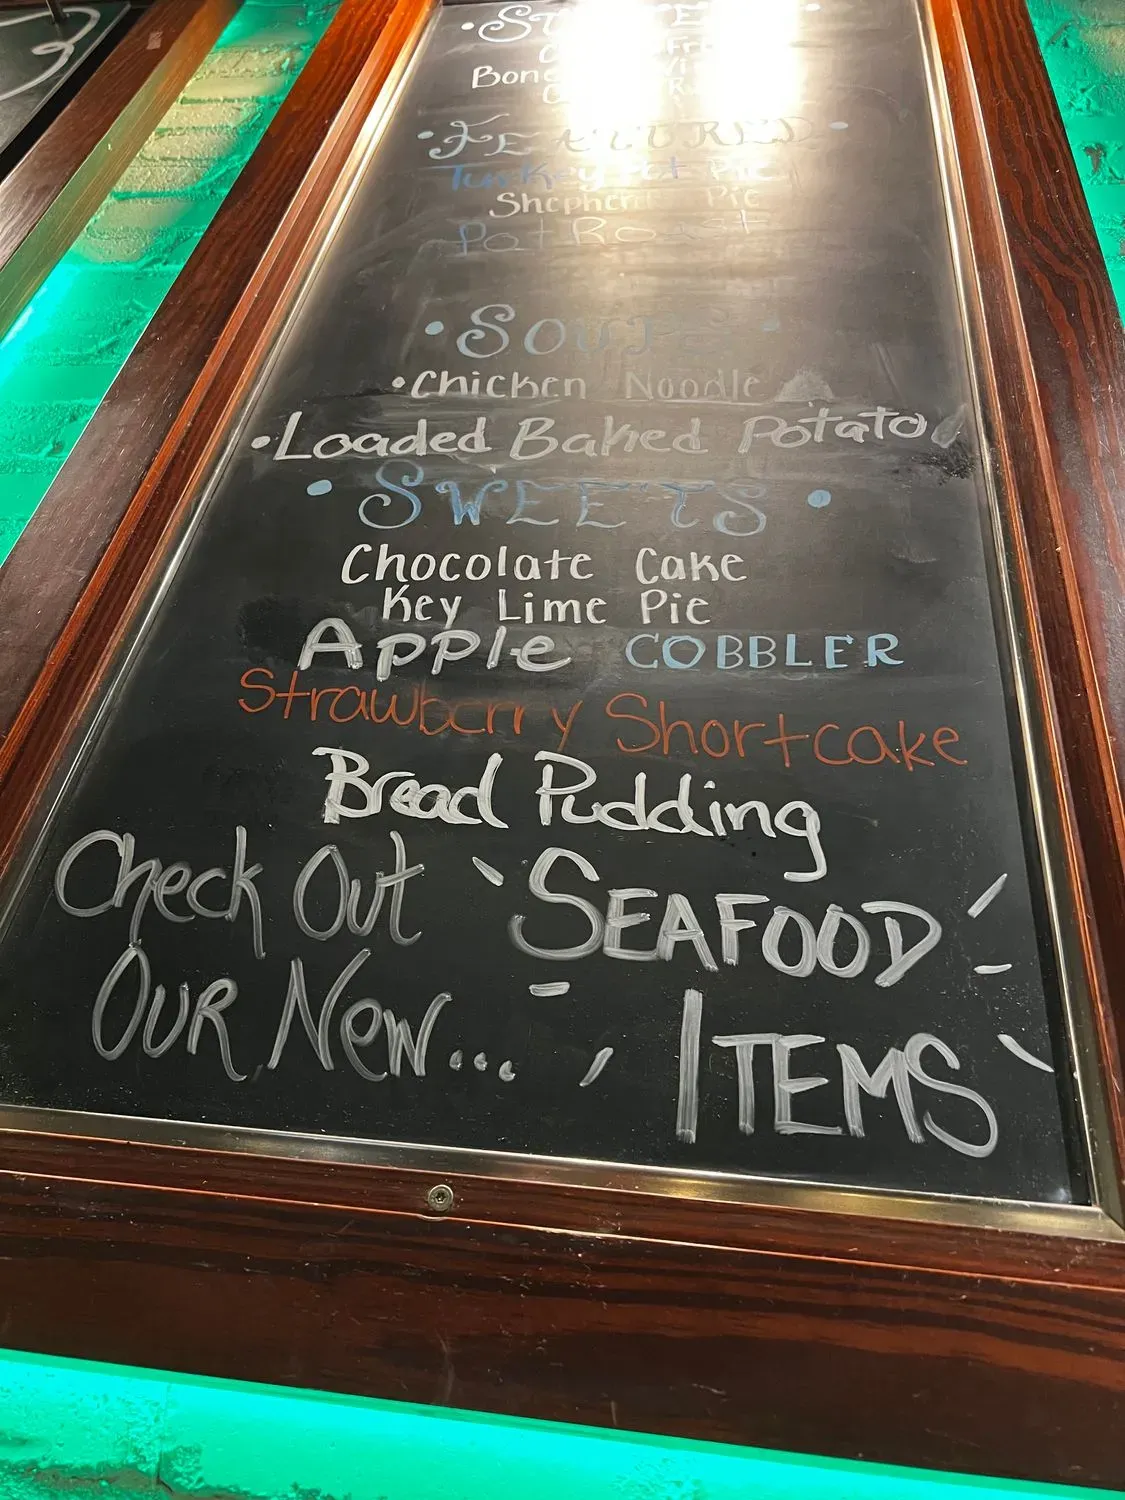 • FEATURED •
Turkey Pot Pie
Shepherd's Pie
Pot Roast
• SOUPS •
• Chicken Noodle
• Loaded Baked Potato
• SWEETS •
Chocolate Cake
Key Lime Pie
Apple COBBLER
Strawberry Shortcake
Bread Pudding
Check Out SEAFOOD
OUR New... ITEMS